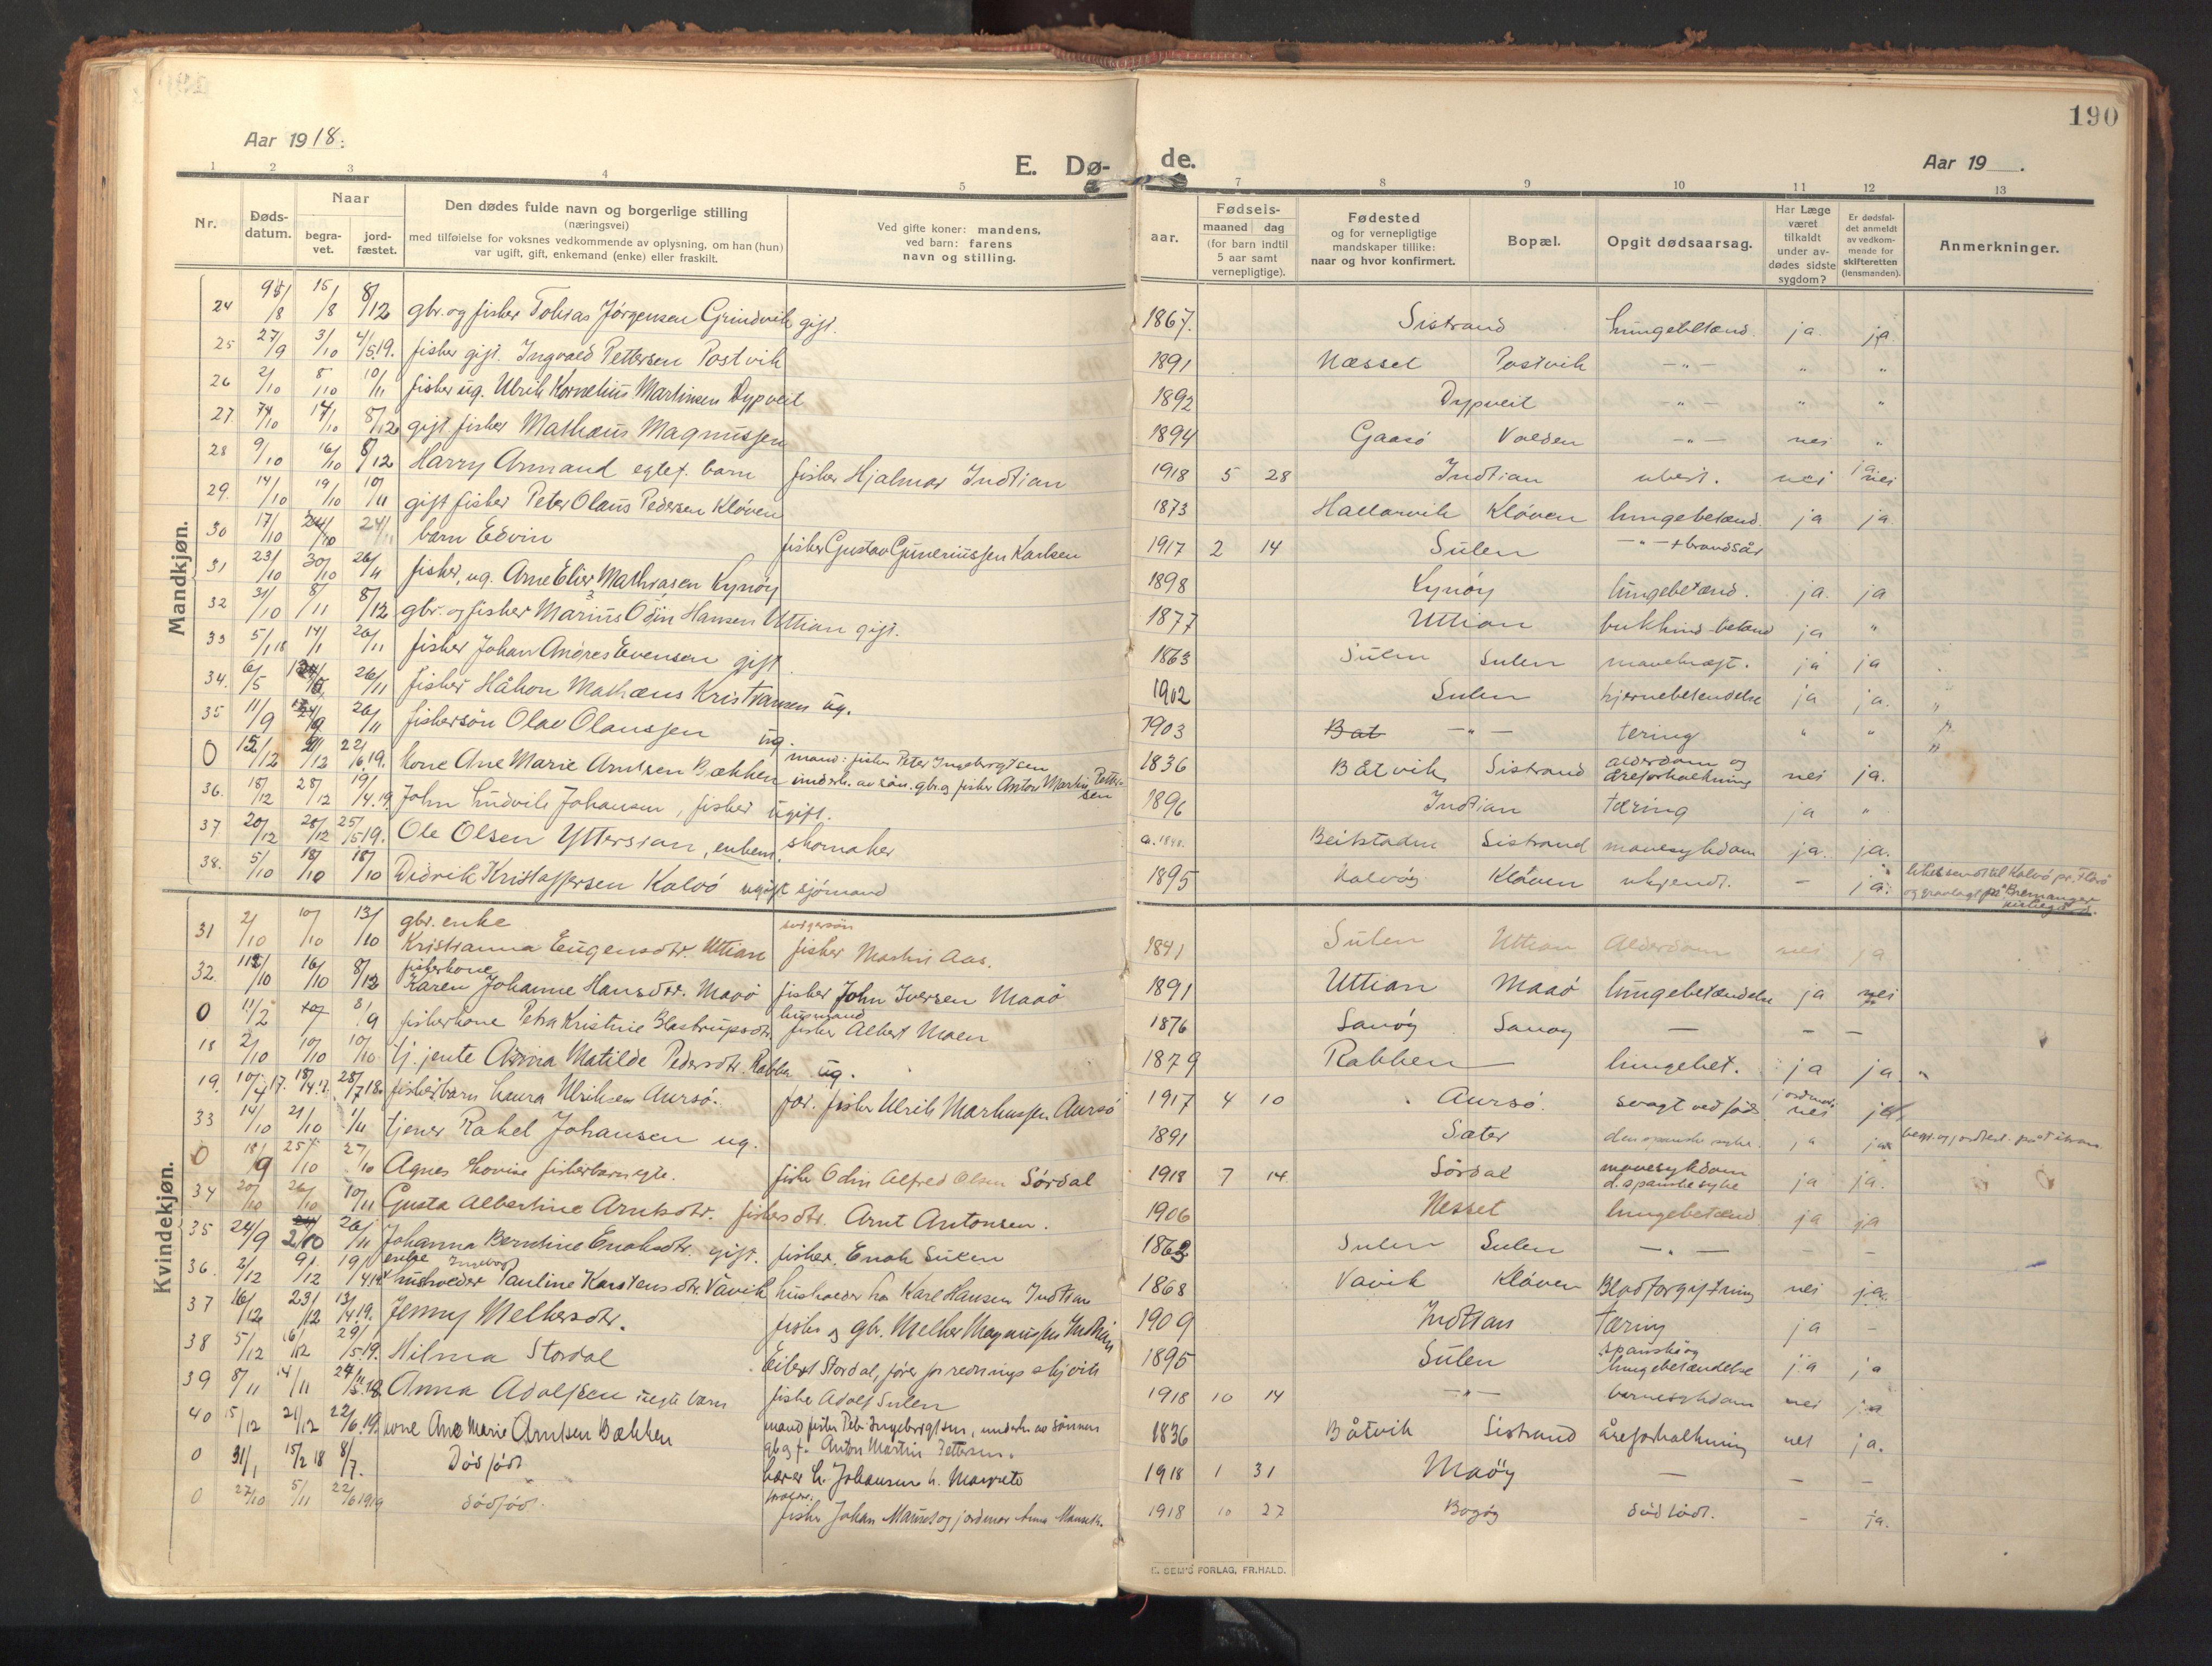 190
Aar 1918.
E. Dø-
de.
Aar 19 .
1 2 3 4 5 7 8 9 10 11 12 13
Nr.
Døds-
datum.
Naar
begra-
vet.
jord-
fæstet.
Den dødes fulde navn og borgerlige stilling
(næringsvei)
med tilføielse for voksnes vedkommende av oplysning, om han (hun)
var ugift, gift, enkemand (enke) eller fraskilt.
Ved gifte koner: mandens,
ved barn: farens
navn og stilling.
aar.
Fødsels-
maaned dag
(for barn indtil
5 aar samt
vernepligtige).
Fødested
og for vernepligtige
mandskaper tillike:
naar og hvor konfirmert.
Bopæl.
Opgit dødsaarsag.
Har Læge
været
tilkaldt
under av-
dødes sidste
sygdom?
Er dødsfal-
det anmeldt
av vedkom-
mende for
skifteretten
(lensmanden).
Anmerkninger.
Mandkjøn.
24 15/8 8/12 gbr. og fisker Tobias Jørgensen Grindvik gift. 1867. Sistrand lungebetænd. ja. ja
25 27/9 3/10 4/5 19. fisker gift. Ingvald Pettersen Postvik 1891 Næsset Postvik —"— " "
26 2/10 8/10 10/11 fisker ug. Ulrik Kornelius Martinsen Dypveit 1892 Dypveit —"— " "
27. 7/10 14/10 8/12 gift fisker Mathæus Magnussen 1894 Gaasø Valden —"— nei "
28 9/10 16/10 8/12 Harry Armand egtef. barn fisker Hjalmar Indtian 1918 5 28 Indtian ubest. nei ja nei
29. 14/10 19/10 10/11 gift fisker Peter Olaus Pedersen Kløven 1873 Hallarvik Kløven lungebetænd. ja ja
30 17/10 24/10 24/11 barn Edvin fisker Gustav Guneriussen Karlsen 1917 2 14 Sulen —"— + brandsår
31 23/10 30/10 26/11 fisker, ug. Arne Elier Mathiasen Kynøy 1898 Kynøy lungebetænd. ja. ja
32 31/10 8/11 8/12 gbr. og fisker Marius Odin Hansen Uttian gift. 1877 Uttian bukhindbetænd ja "
33 5/1 18 14/1 26/11 fisker Johan Andres Evensen gift 1863 Sulen Sulen mavekræft. ja ja
34. 6/5 26/11 fisker Håkon Mathæus Kristiansen ug. 1902 Sulen hjernebetendelse ja ja. "
35 11/9 26/11 fiskersøn Olav Olaussen ug. 1903 Bat —"— tering " " "
0 15/12 21/12 22/6 19. kone Ane Marie Arntsen Bækken mand: fisker Peter Ingebrigtsen
underh. av søn. gbr. og fisker Anton Martin Pettersen 1836 Båtvik Sistrand alderdom og
åreforkalkning nei ja.
36. 18/12 28/12 19/4 19 John Ludvik Johansen, fisker ugift. 1896 Indtian tæring ja "
37 20/12 28/12 25/5 19. Ole Olsen Yttersian, enkem. skomaker ca. 1848. Beitstaden Sistrand mavesykdom ja. ja.
38. 5/10 18/10 18/10 Didrik Kristoffersen Kalvø ugift sjømand 1895 Kalvøy Kløven ukjendt. - ja. liket sendt til Kalvø pr. Florø
og gravlagt på Bremanger
kirkegård.
Kvindekjøn.
31 2/10 10/10 13/10 gbr. enke
Kristianna Eugensdtr. Uttian svigersøn
fisker Martin Aas. 1841 Sulen Uttian Alderdom nei ja
32. 16/10 8/12 fiskerkone
Karen Johanne Hansdtr. Maaø fisker John Iversen Maaø 1891 Uttian Maaø lungebetændelse ja nei
0 11/2 8/9 fiskerkone Petra Kristine Blastrupsdtr. husmand
fisker Albert Moen 1876 Sanøy Sanøy — - —
18 2/10 10/10 10/10 tj. jente Anna Matilde Pedersdtr. Rabben ug. 1879 Rabben — lungebet. ja ja. "
19. 10/4 17. 18/4 17. 28/7 18. fiskerbarn Laura Ulriksen Aursø. far. fisker Ulrik Markussen Aursø 1917 4 10 Aursø. svagt ved føds. jordmor
nei ja
33 14/10 21/10 1/11 tjener Rakel Johansen ug. 1891 Sæter den spanske syke. ja ja
0 18/9 25/10 27/10 Agnes Lovise fiskerbarn egte. fisker Odin Alfred Olsen Sørdal 1918 7 14 Sørdal mavesykdom
d. spanske syke ja ja.
34 20/10 26/10 10/11 Gusta Albertine Arntsdtr. fiskersdtr. Arnt Antonsen. 1906 Nesset lungebetænd ja ja
35 24/9 2/10 26/11 Johanna Berntine Enoksdtr. gift. fisker. Enok Sulen 1863 Sulen Sulen —"— - -
36. 2/12 9/12 19/4 19 enke Ingeborg
husholder Pauline Karstensdtr. Våvik husholder hos Karl Hansen Indtian 1868 Vavik Kløven Blodforgiftning nei ja.
37 16/12 23/12 13/4 19. Jenny Melkersdtr. fisker og gbr. Melker Magnussen Indtian 1909 Indtian Tæring ja -
38 5/12 16/12 29/5 19. Hilma Stordal Eibert Stordal, fører for redningsskjøite 1895 Sulen spanske og
lungebetændelse ja ja
39 8/11 14/11 Anna Adolfsen uegte barn fisker Adolf Sulen 1918 10 14 —"— barnesykdom nei ja
40 15/12 21/12 22/6 19. kone Ane Marie Arntsen Bækken mand fisker Peter Ingebrigtsen, underh. av sønnen
gb og f. Anton Martin Pettersen. 1836 Båtvik Sistrand åreforkalkning nei ja.
0 31/1 15/2 18 8/7. Dødfødt L. Johansen h. Margrete 1918 1 31 Maøy — - -
0 27/10 5/11 22/6 1919 dødfødt. fisker Johan 1918 10 27 Bogøy dødfødt. - ja.
E. SEM'S FORLAG, FR.HALD.